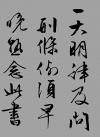 一大明律及问
刑條例須早
晩熟念此書